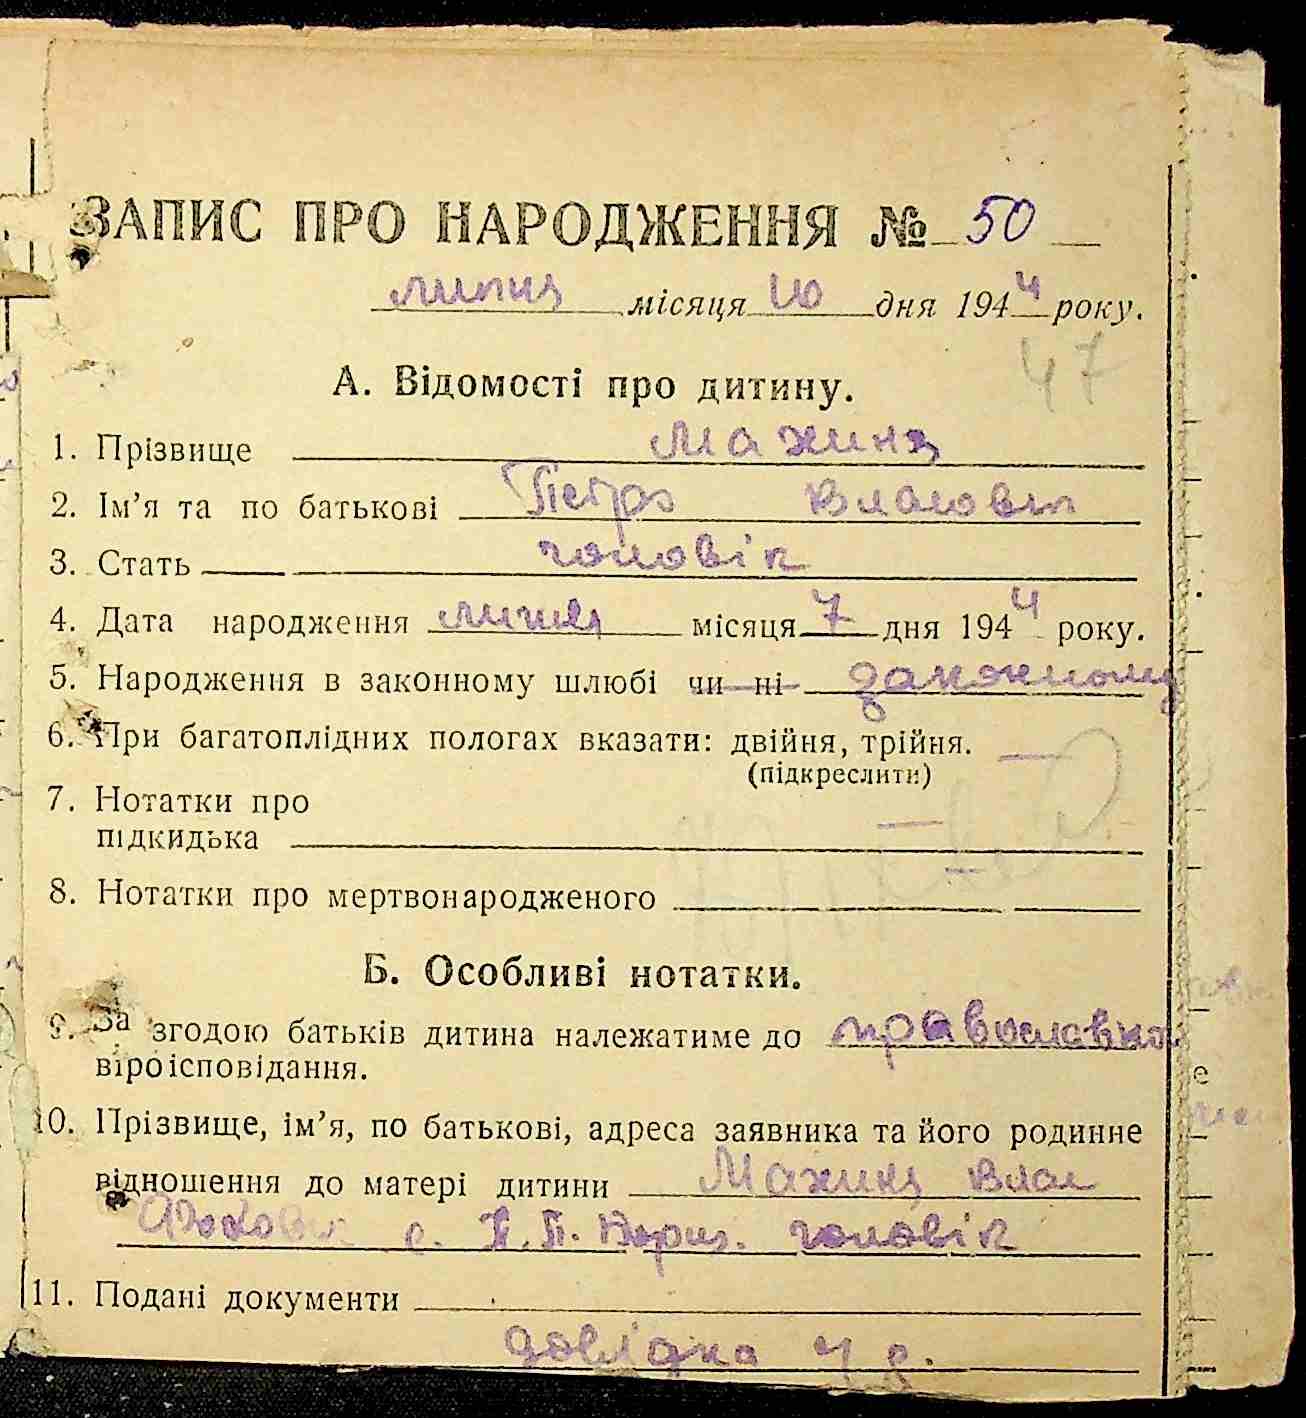 ЗАПИС ПРО НАРОДЖЕННЯ № 50
липня місяця 10 дня 1944 року.
47
А. Відомості про дитину.
1. Прізвище Мажинц
2. Ім’я та по батькові Петро Власовіч
3. Стать чоловік
4. Дата народження липня місяця 7 дня 1944 року.
5. Народження в законному шлюбі чи ні законному
6. При багатоплідних пологах вказати: двійня, трійня.
(підкреслити)
7. Нотатки про
підкидька
8. Нотатки про мертвонародженого
Б. Особливі нотатки.
9. За згодою батьків дитина належатиме до православно
віроісповідання.
10. Прізвище, ім’я, по батькові, адреса заявника та його родинне
відношення до матері дитини Влас
с. чоловік
11. Подані документи
довідка